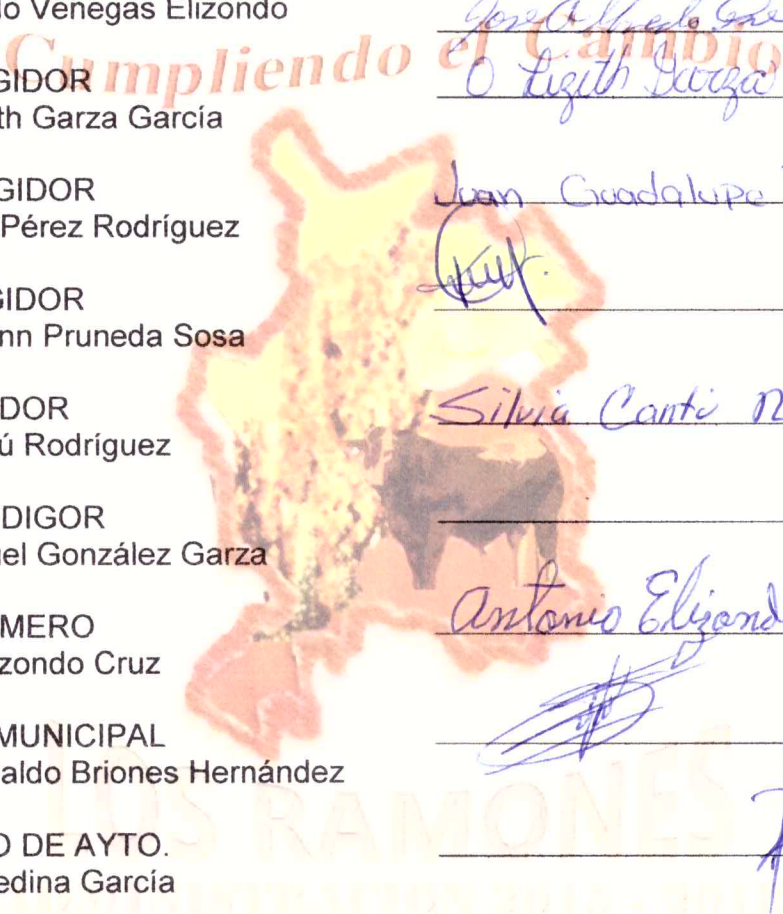 do Venegas Elizondo
Jose Alfredo
Cumpliendo el Cambio
GIDOR
th Garza García
Lizeth Garza
GIDOR
Pérez Rodríguez
Juan Guadalupe
GIDOR
nn Pruneda Sosa
DOR
ú Rodríguez
Silvia Cantú
DIGOR
uel González Garza
MERO
zondo Cruz
Antonio Elizond
MUNICIPAL
aldo Briones Hernández
LOS RAMONES
O DE AYTO.
edina García